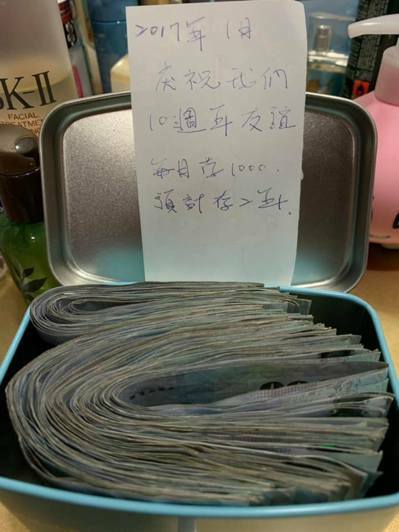 SK-II
FACIAL
2017年1月
庆祝我們
10週年友誼
每日存1000.
預計存2年.